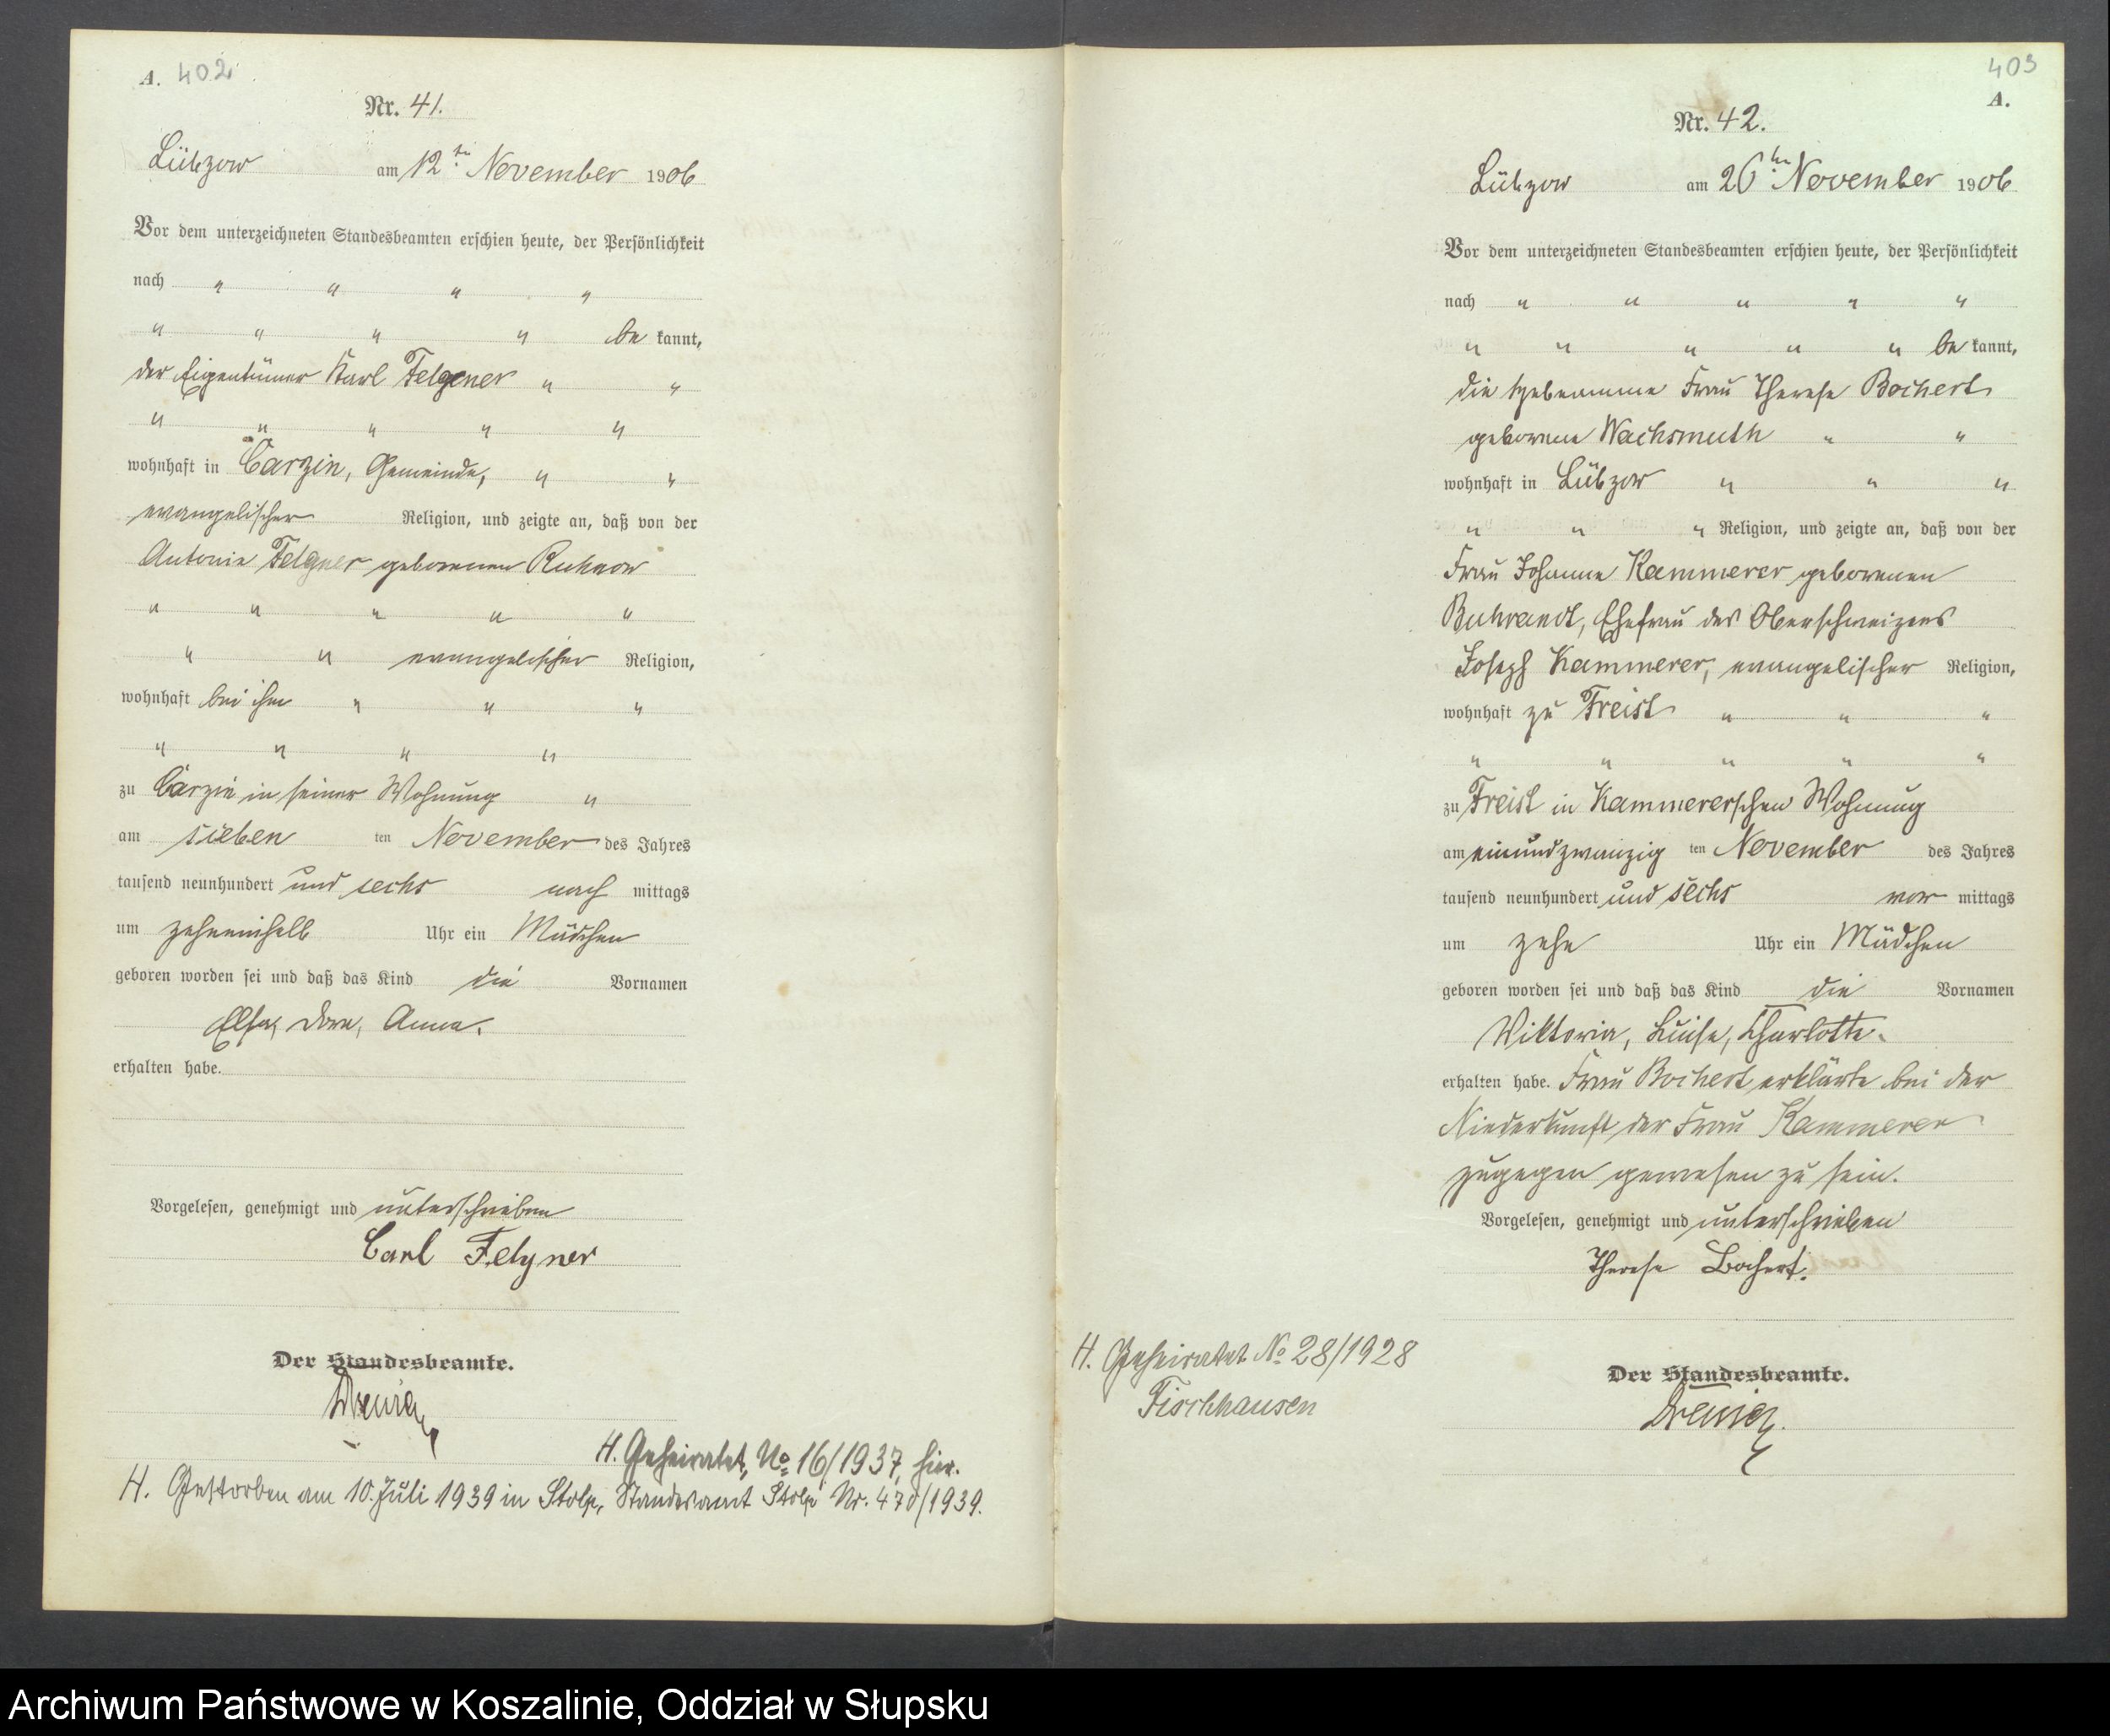 A. 402
Nr. 41.
Lübzow am 12ten November 1906
Vor dem unterzeichneten Standesbeamten erschien heute, der Persönlichkeit
nach " " " "
" " " " be kannt,
der Eigentümer Karl Felgener " "
" " " " "
wohnhaft in Carzin, Gemeinde, " "
evangelischer Religion, und zeigte an, daß von der
Antonie Felgner geborenen Ruhnow
" " " " "
" " evangelischer Religion,
wohnhaft bei ihm " " "
" " " "
zu Carzin in seiner Wohnung "
am sieben ten November des Jahres
tausend neunhundert und sechs nach mittags
um zehneinhalb Uhr ein Mädchen
geboren worden sei und daß das Kind die Vornamen
Elsa, Dora, Anna.
erhalten habe.
Vorgelesen, genehmigt und unterschrieben
Carl Felgner
Der Standesbeamte.
H. Geheiratet, No 16/1937, hier.
H. Gestorben am 10. Juli 1939 in Stolp, Standesamt Stolp Nr. 470/1939.
403
A.
Nr. 42.
Lübzow am 26ten November 1906
Vor dem unterzeichneten Standesbeamten erschien heute, der Persönlichkeit
nach " " " " "
" " " " " be kannt,
die Hebeamme Frau Therese Bochert
geborene Wachsmuth " "
wohnhaft in Lübzow " " "
" " " Religion, und zeigte an, daß von der
Frau Johanne Kammerer geborenen
Buhrandt, Ehefrau des Oberschweizers
Joseph Kammerer, evangelischer Religion,
wohnhaft zu Freist " " "
" " " " "
zu Freist in Kammererschen Wohnung
am einundzwanzig ten November des Jahres
tausend neunhundert und sechs vor mittags
um zehn Uhr ein Mädchen
geboren worden sei und daß das Kind die Vornamen
Viktoria, Luise, Charlotte.
erhalten habe. Frau Bochert erklärte bei der
Niederkunft der Frau Kammerer
zugegen gewesen zu sein.
Vorgelesen, genehmigt und unterschrieben
Therese Bochert.
H. Geheiratet No 28/1928
Fischhausen
Der Standesbeamte.
Archiwum Państwowe w Koszalinie, Oddział w Słupsku